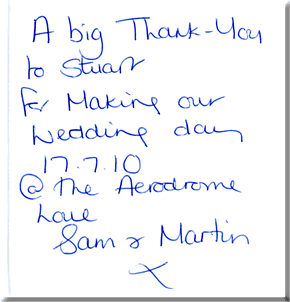 A big Thank-You
to Stuart
for Making our
Wedding day
17.7.10
@ The Aerodrome
Love
Sam & Martin
X